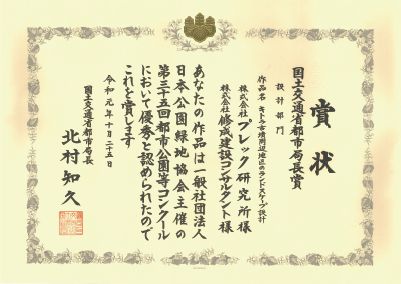 賞状
国土交通省都市局長賞
設計部門
作品名 キトラ古墳周辺地区のランドスケープ設計
株式会社 プレック研究所 様
株式会社 修成建設コンサルタント 様
あなたの作品は一般社団法人
日本公園緑地協会主催の
第三十五回都市公園等コンクール
において優秀と認められたので
これを賞します
令和元年十月二十五日
国土交通省都市局長
北村知久